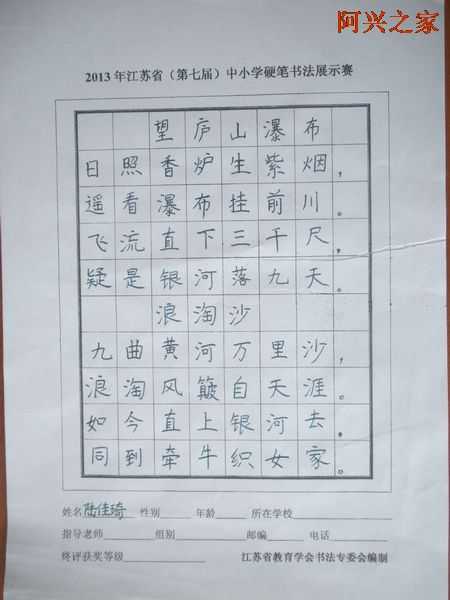 阿兴之家
2013年江苏省（第七届）中小学硬笔书法展示赛
望庐山瀑布
日照香炉生紫烟，
遥看瀑布挂前川。
飞流直下三千尺，
疑是银河落九天。
浪淘沙
九曲黄河万里沙，
浪淘风簸自天涯。
如今直上银河去，
同到牵牛织女家。
姓名陆佳琦 性别 年龄 所在学校
指导老师 组别 邮编 电话
终评获奖等级 江苏省教育学会书法专委会编制